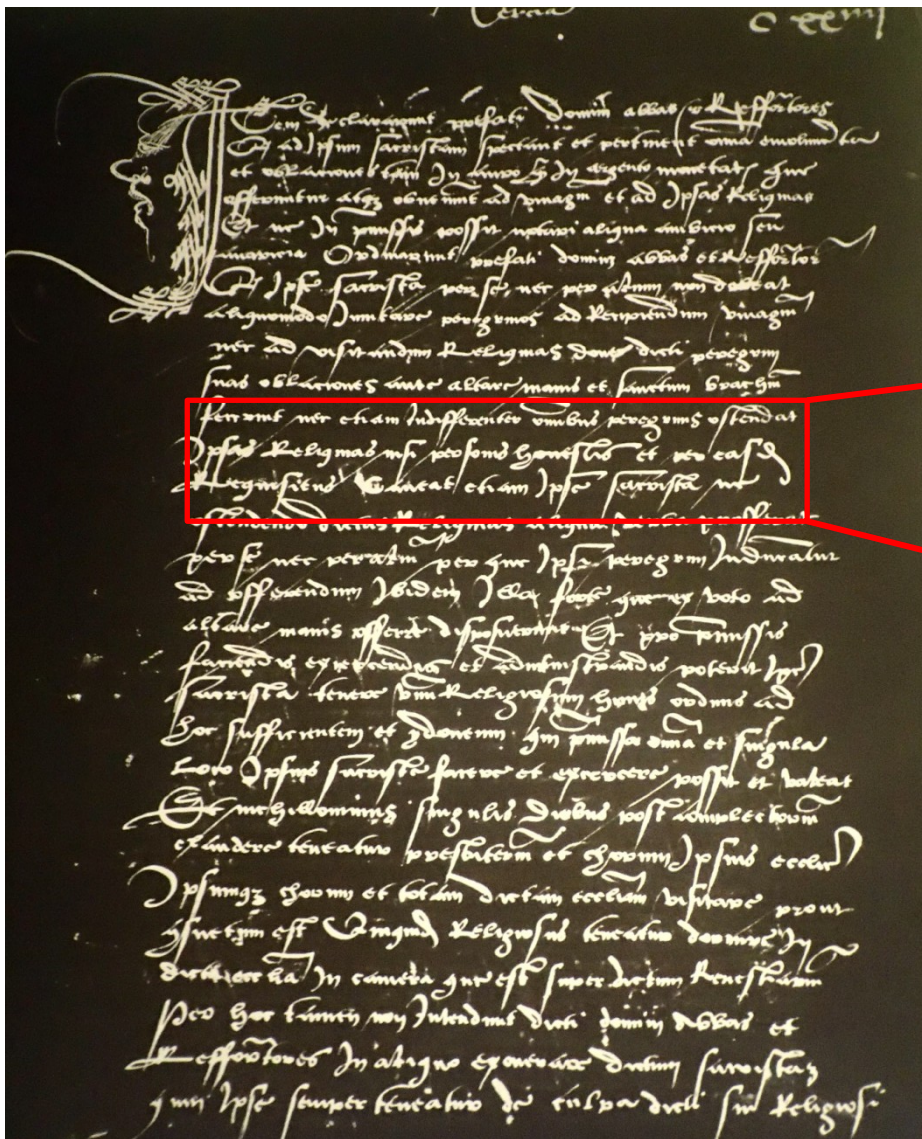 Tercia C xxiiij
Item declaraverunt prefati domini abbas et Reffor̄tores
Qt ad Ipsum sacristam spectant et pertinent omnia emolumēta
et oblationes tam In auro qͣ In argento monetat̄ que
offeruntur atqꝫ obveniūt ad ymagīnē et ad Ipsas Reliquias
Et ne In p̄missis possit notari aliqua ambicio seu
avaricia Ordinarunt prefati domini abbas et Reffor̄tor
Qt Ipse sacrista per se nec per alium non debeat
aliquomodo Invitare peregrinos ad Recipiendum ymagīnē
nec ad visitandum Reliquias donec dicti peregrini
suas oblaciones ante altare manis et sanctum brachiū
fecerint nec etiam Indifferenter omībus peregrinis ostendat
Ipsas Reliquias nisi personis honestis et per eas
Requisitus Caveat etiam Ipse sacrista ne
ostendendo dictas Reliquias aliqua verba profferat
per se nec per aliū per que Ipsi peregrini Inducantur
ad offerendum Ibidem Illa forte que ex voto ad
altare manis offerre disposuerant Et pro p̄missis
faciendis exercendis et administrandis poterit Ip̄e
sacrista tenere unū Religiosum huius ordinis ad
hoc sufficientem et ydoneum qui p̄missa omīa et singula
Loco Ipsius sacriste facere et exercere possit et valeat
Et nichillominus singulis diebus post completoriū
claudere teneatur presbiteriū et chorum Ipsius ecclīe
Ipsumqꝫ chorum et totam dictam eccliam visitare prout
consuetum est Religiosus teneatur dormire In
dicta ecclīa In camera que est super dictum Revestiariū
Per hoc tamen non Intendunt dicti domini Abbas et
Reffor̄tores In aliquo exonerare dictum sacristam
quin Ipse semper teneatur de culpa dicti sui Religiosi